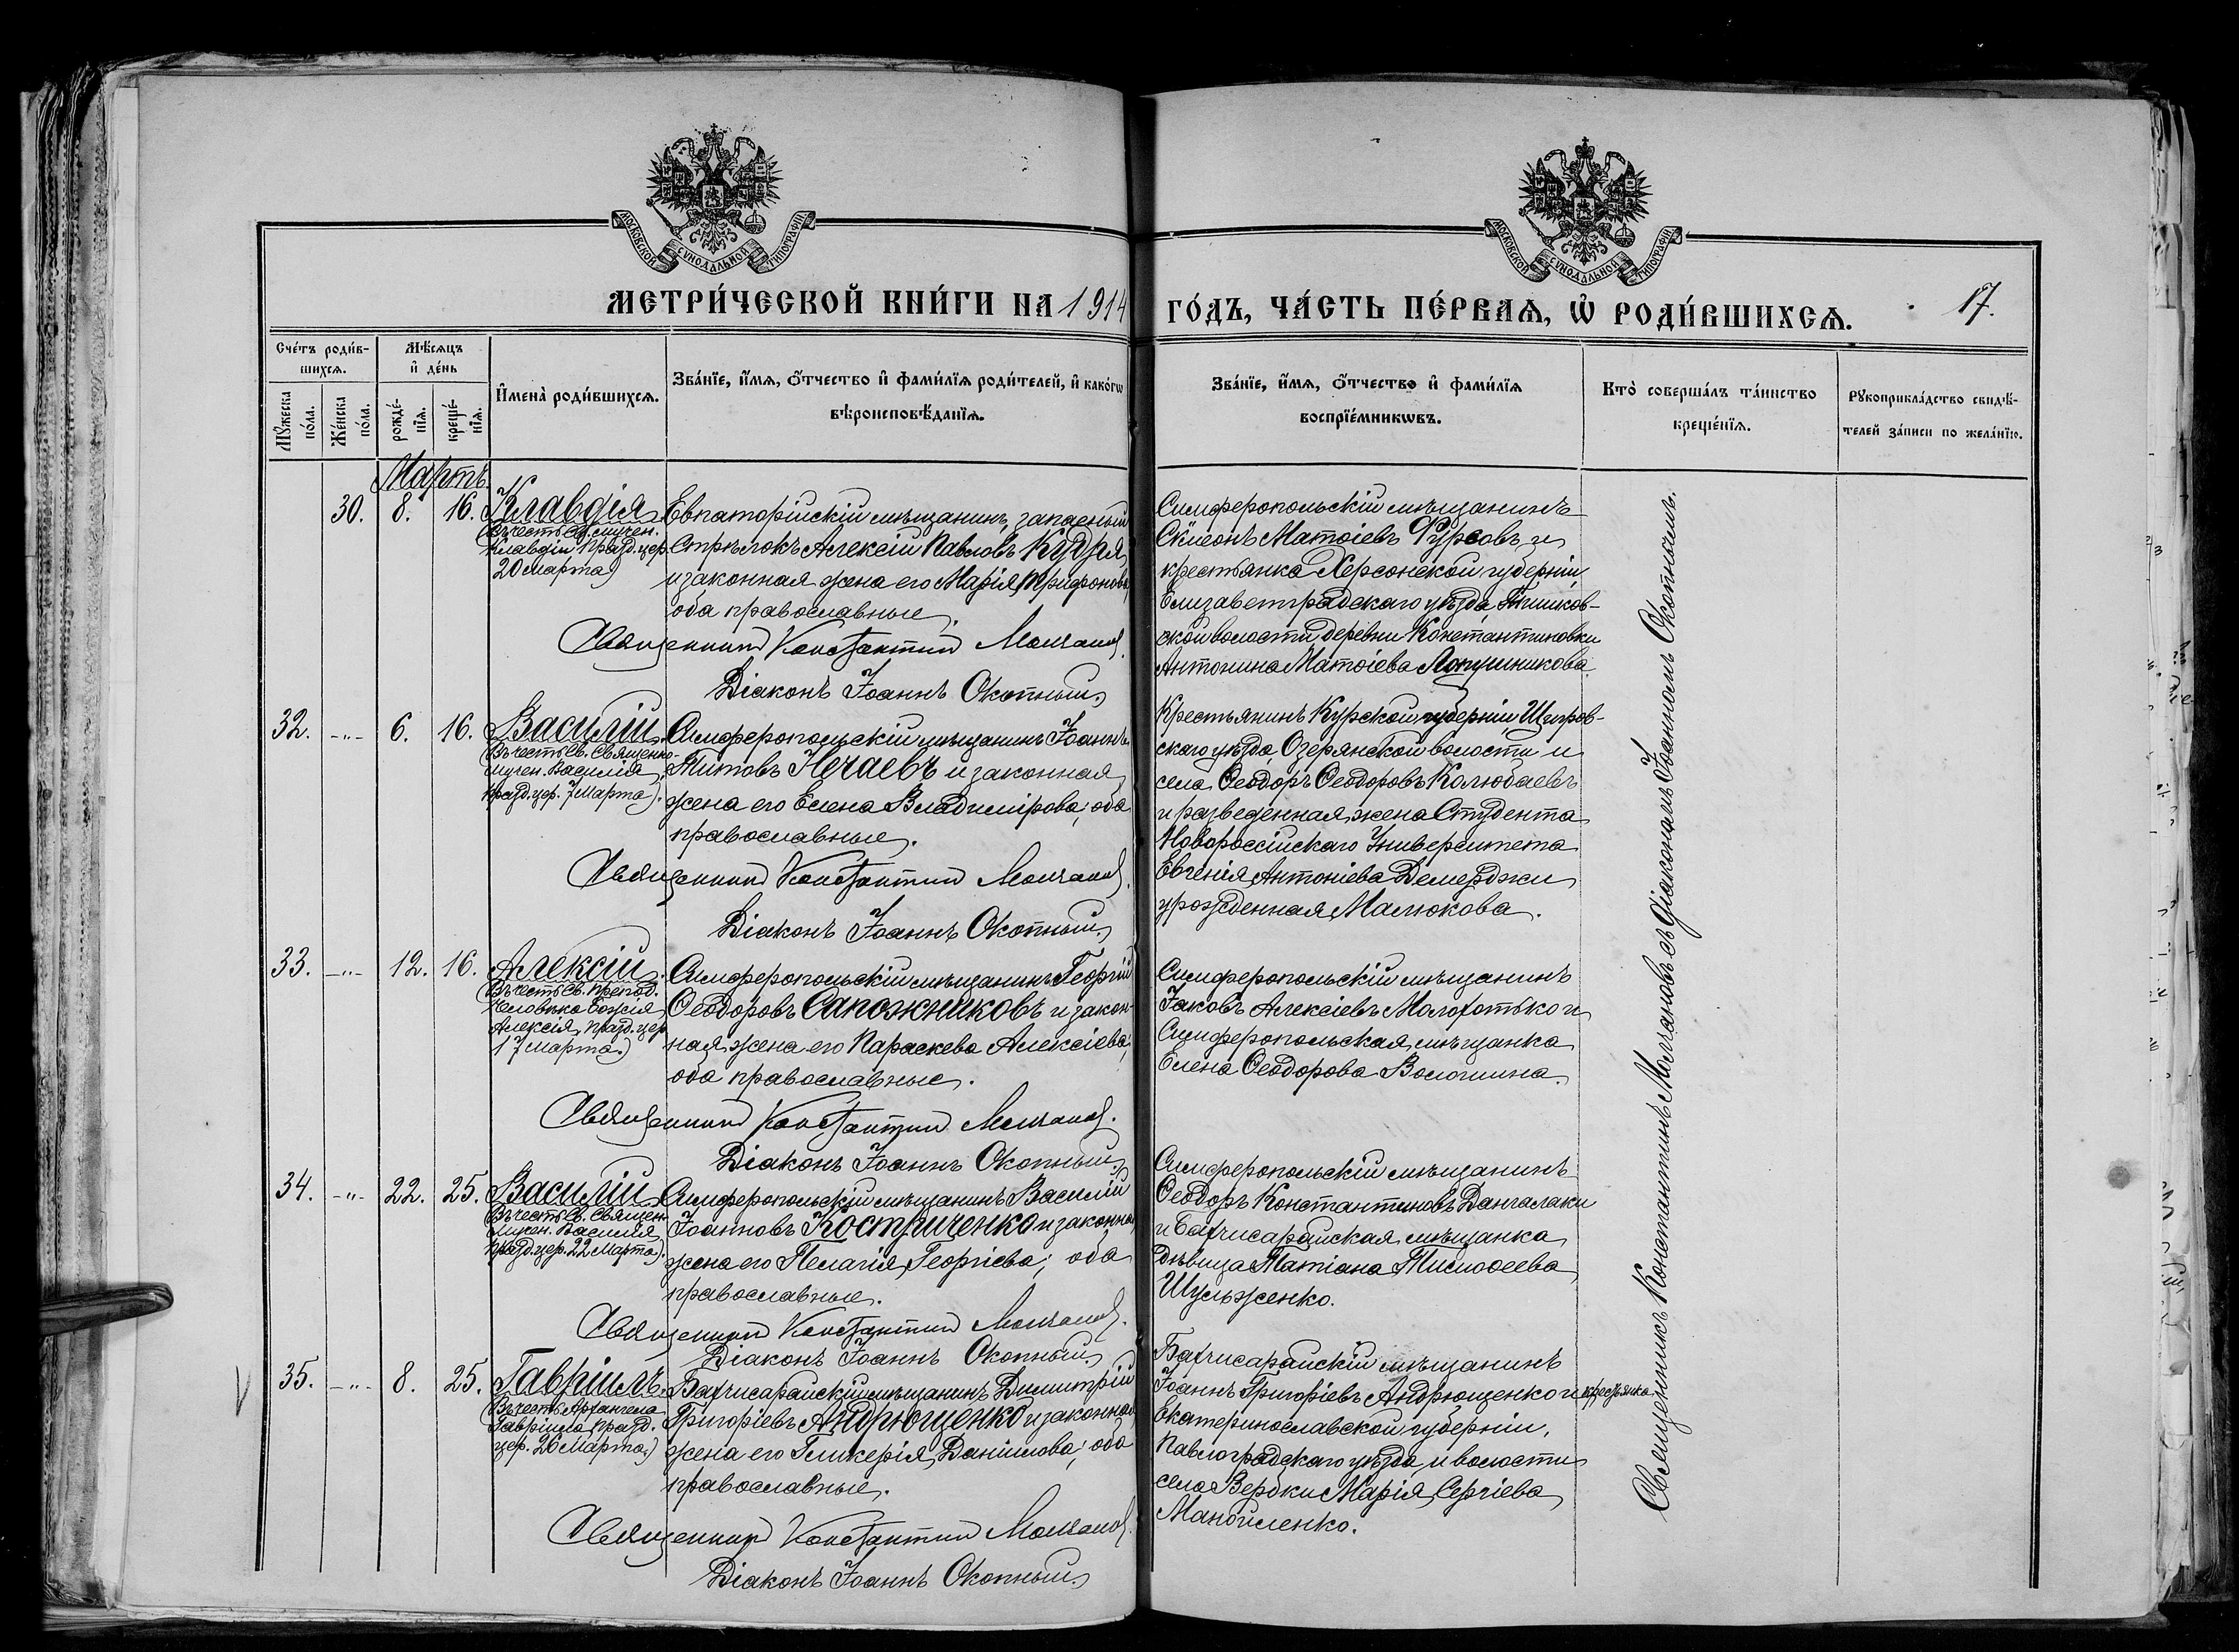 МОСКОВСКОЙ СѴНОДАЛЬНОЙ ТИПОГРАФІИ
МОСКОВСКОЙ СѴНОДАЛЬНОЙ ТИПОГРАФІИ
МЕТРИ́ЧЕСКОЙ КНИ́ГИ НА 1914 ГО́ДЪ, ЧА́СТЬ ПЕ́РВАѦ, Ѡ҆ РОДИ́ВШИХСѦ. 17.
Сче́тъ роди́в-
шихсѧ.
Мꙋ́жеска
по́ла.
Же́нска
по́ла.
Мѣ́сѧцъ
и҆ де́нь
рожде́-
нїѧ.
креще́-
нїѧ.
И҆мена̀ роди́вшихсѧ.
Зва́нїе, и҆́мѧ, ѻ҆́тчество и҆ фами́лїѧ роди́телей, и҆ како́гѡ
вѣроисповѣ́данїѧ.
Зва́нїе, и҆́мѧ, ѻ҆́тчество и҆ фами́лїѧ
воспрїе́мникѡвъ.
Кто̀ соверша́лъ та́инство
креще́нїѧ.
Рꙋкоприкла́дство свидѣ́-
телей за́писи по жела́нїю.
Мартъ.
30. 8. 16.
Клавдія
(Въ честь св. мучен.
Клавдіи празд. цер.
20 марта)
Евпаторійскій мѣщанинъ, запасный
Стрѣлокъ Алексій Павловъ Кудря,
и законная жена его Марія Трифонова
оба православные.
Священник Константин Молчанов.
Діаконъ Іоаннъ Окопный.
Симферопольскій мѣщанинъ
Сѵмеонъ Матѳіевъ Фурсовъ и
крестьянка Херсонской губерніи,
Елизаветградскаго уѣзда,
ской волости деревни Константиновки
Антонина Матѳіева Лопушникова.
32. -"- 6. 16.
Василій
(Въ честь св. Священно-
мучен. Василія,
празд. цер. 7 марта).
Симферопольскій мѣщанинъ Іоаннъ
Титовъ Нечаевъ и законная
жена его Елена Владимірова; оба
православные.
Священник Константин Молчанов.
Діаконъ Іоаннъ Окопный.
Крестьянинъ Курской губерніи, Щигров-
скаго уѣзда, Озерянской волости и
села Ѳеодоръ Ѳеодоровъ Колюбаевъ
и разведенная жена Студента
Новороссійскаго Университета
Евгенія Антоніева Демерджи
урожденная Малюкова.
33. -"- 12. 16.
Алексій
(Въ честь св. препод.
Человѣка Божія
Алексія, празд. цер.
17 марта.)
Симферопольскій мѣщанинъ Георгій
Ѳеодоровъ Сапожниковъ и закон-
ная жена его Параскева Алексіева;
оба православные.
Священник Константин Молчанов.
Діаконъ Іоаннъ Окопный.
Симферопольскій мѣщанинъ
Іаковъ Алексіевъ Молотько и
Симферопольская мѣщанка
Елена Ѳеодорова Волошина.
34. -"- 22. 25.
Василій
(Въ честь св. Священ.
мучен. Василія,
празд. цер. 22 марта).
Симферопольскій мѣщанинъ Василій
Іоанновъ Костриченко и законная
жена его Пелагія Георгіева; оба
православные.
Священник Константин Молчанов.
Діаконъ Іоаннъ Окопный.
Симферопольскій мѣщанинъ
Ѳеодоръ Константиновъ Дангалаки
и Бахчисарайская мѣщанка
дѣвица Татіана Тимоѳеева
Шульженко.
35. -"- 8. 25.
Гавріилъ
(Въ честь Архангела
Гавріила, празд.
цер. 26 марта.)
Бахчисарайскій мѣщанинъ Димитрій
Григоріевъ Андрющенко и законная
жена его Гликерія Даніилова; оба
православные.
Священник Константин Молчанов.
Діаконъ Іоаннъ Окопный.
Бахчисарайскій мѣщанинъ
Іоаннъ Григоріевъ Андрющенко и крестьянка
Екатеринославской губерніи,
Павлоградскаго уѣзда и волости
села Вербки Марія Сергіева
Манойленко.
Священникъ Константинъ Молчановъ съ діакономъ Іоанномъ Окопнымъ.